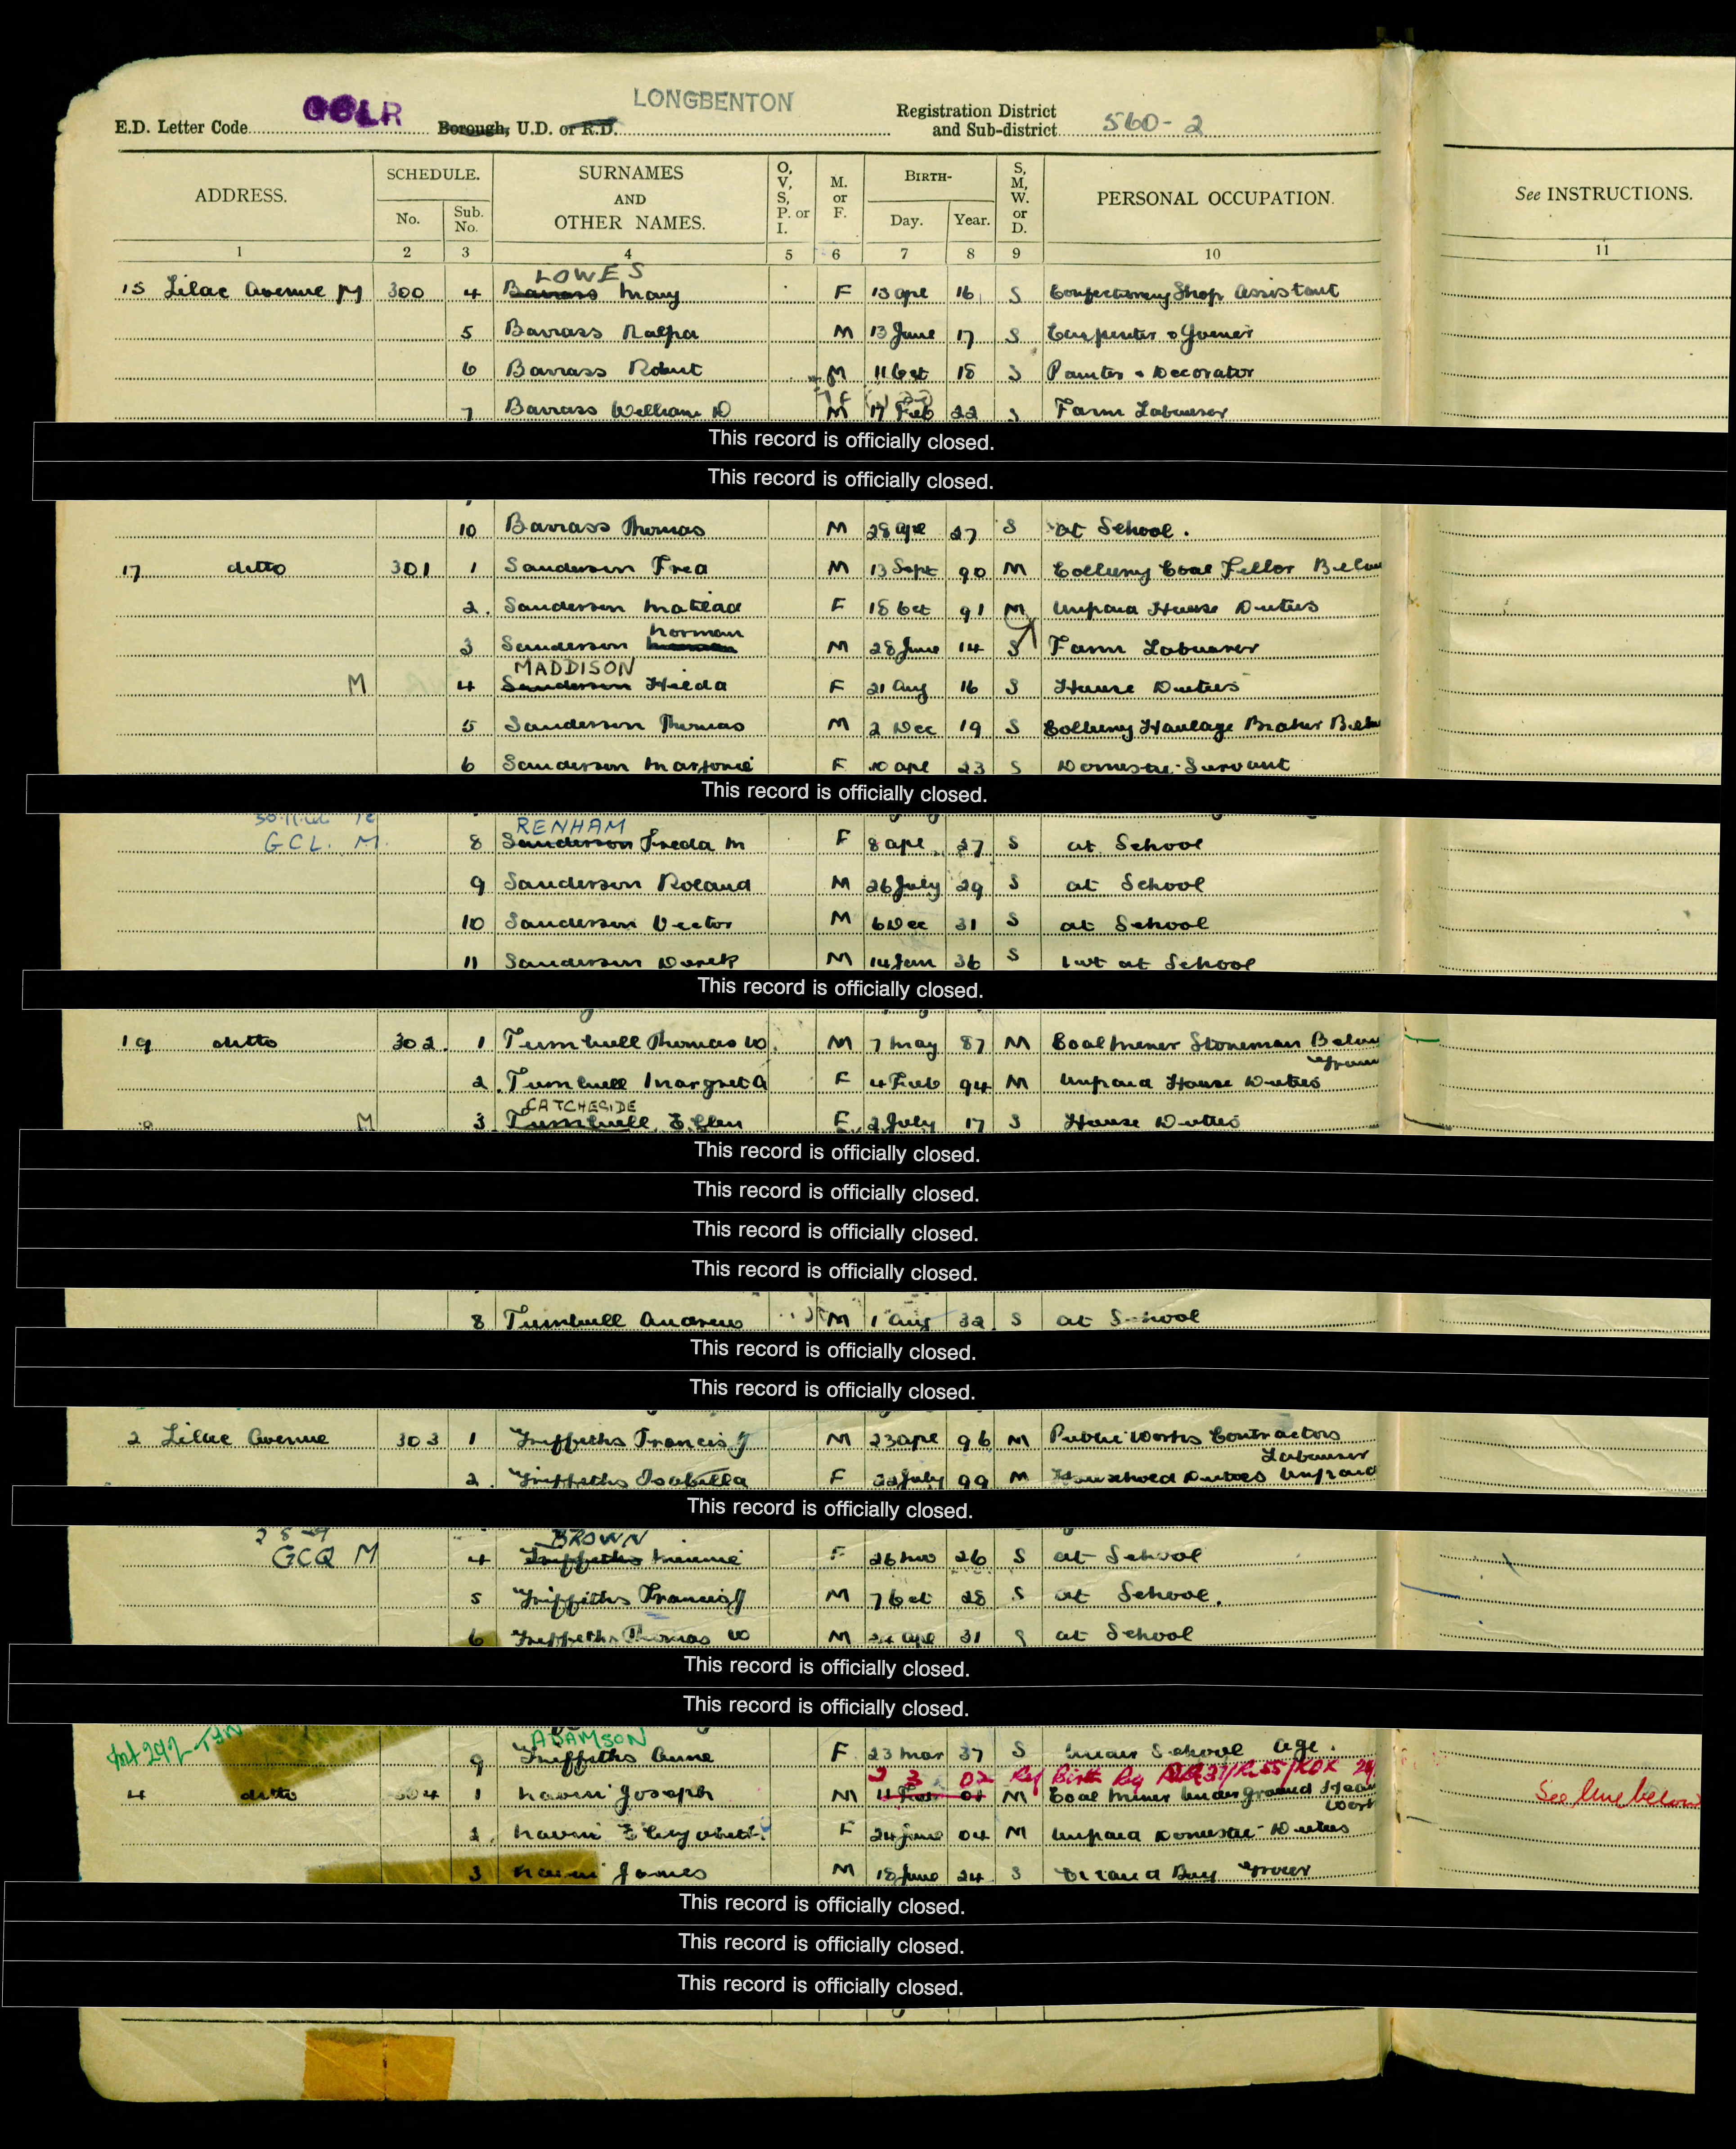 LONGBENTON
E.D. Letter Code Borough, U.D. or R.D. Registration District and Sub-district 560-2
ADDRESS. SCHEDULE. No. Sub. No. SURNAMES AND OTHER NAMES. O, V, S, P. or I. M. or F. BIRTH- Day. Year. S, M, W. or D. PERSONAL OCCUPATION. See INSTRUCTIONS.
1 2 3 4 5 6 7 8 9 10 11
LOWES
15 Lilac Avenue M 300 4 Barrass Mary F 13 Apl 16 S Confectionery Shop Assistant
5 Barrass Ralph M 13 June 17 S Carpenter & Joiner
6 Barrass Robert M 11 Oct 18 S Painter & Decorator
7 Barrass William D M 17 Feb 22 S Farm Labourer
This record is officially closed.
This record is officially closed.
10 Barrass Thomas M 28 Apl 27 S at School.
17 ditto 301 1 Sanderson Fred M 13 Sept 90 M Colliery Coal Filler Below
2. Sanderson Matilda F 18 Oct 91 M Unpaid House Duties
Norman
3 Sanderson M 28 June 14 S Farm Labourer
MADDISON
M 4 Sanderson Hilda F 21 Aug 16 S House Duties
5 Sanderson Thomas M 2 Dec 19 S Colliery Haulage Braker Below
6 Sanderson Marjorie F 10 Apl 23 S Domestic Servant
This record is officially closed.
RENHAM
GCL. M. 8 Sanderson Freda M F 8 Apl 27 S at School
9 Sanderson Roland M 26 July 29 S at School
10 Sanderson Victor M 6 Dec 31 S at School
11 Sanderson Derek M 14 Jan 36 S not at School
This record is officially closed.
19 ditto 302 1 Turnbull Thomas W. M 7 May 87 M Coal miner Stoneman Below
Ground
2. Turnbull Margret A F 4 Feb 94 M Unpaid House Duties
CATCHESIDE
M 3 Turnbull Ellen F. 2 July 17 S House Duties
This record is officially closed.
This record is officially closed.
This record is officially closed.
This record is officially closed.
8 Turnbull Andrew M 1 Aug 32 S at School
This record is officially closed.
This record is officially closed.
2 Lilac Avenue 303 1 Griffiths Francis J M 23 Apl 96 M Public Works Contractors
Labourer
2. Griffiths Isabella F 22 July 99 M Household Duties Unpaid
This record is officially closed.
BROWN
GCQ M 4 Griffiths Minnie F 26 Nov 26 S at School
5 Griffiths Francis J M 7 Oct 28 S at School.
6 Griffiths Thomas W M 24 Apl 31 S at School
This record is officially closed.
This record is officially closed.
ADAMSON
9 Griffiths Anne F 23 Mar 37 S Under School age.
2 3 02 Ref Birth Reg
4 ditto 304 1 Joseph M M Coal Miner Underground Heavy See line below
Work
2. Elizabeth F 24 June 04 M Unpaid Domestic Duties
3 James M 18 June 24 S Errand Boy Grocer
This record is officially closed.
This record is officially closed.
This record is officially closed.